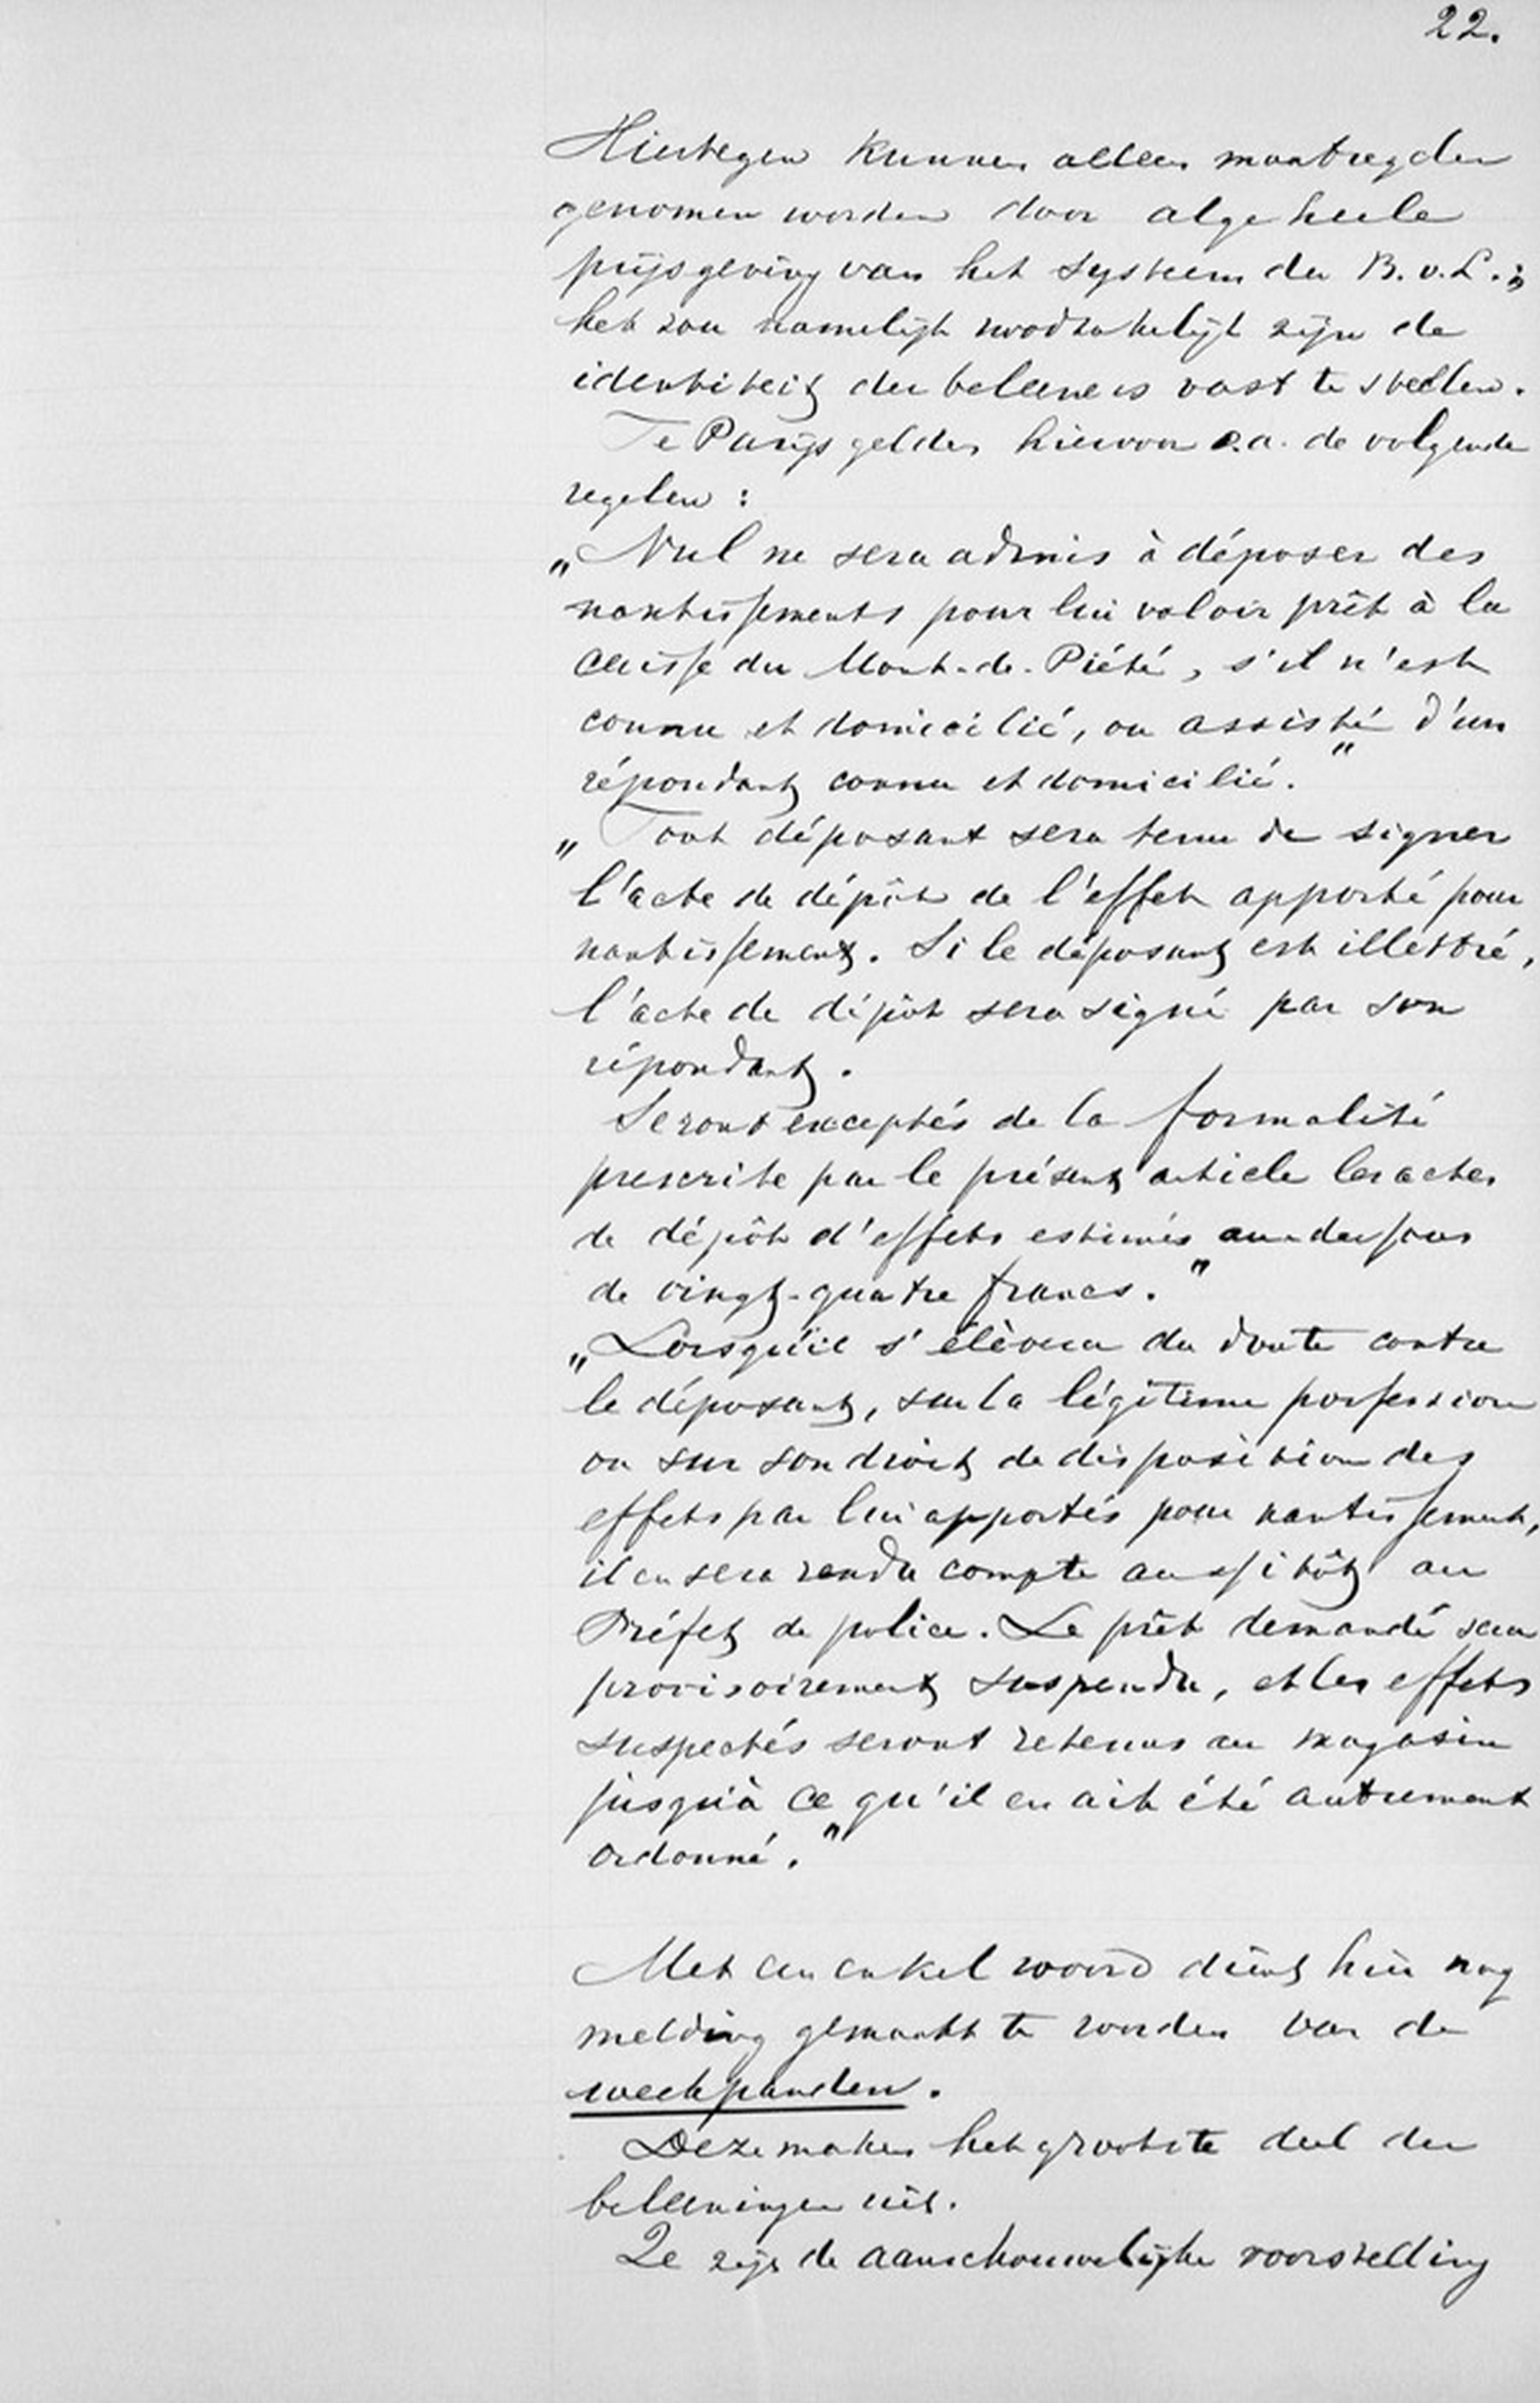 22.
Hiertegen kunnen alleen maatregelen
genomen worden door algeheele
prijsgeving van het systeem der B. v. L.;
het zou namelijk noodzakelijk zijn de
identiteit der beleeners vast te stellen.
Te Parijs gelden hiervoor o.a. de volgende
regelen:
„Nul ne sera admis à déposer des
nantissements pour lui valoir prêt à la
caisse du Mont-de-Piété, s'il n'est
connu et domicilié, ou assisté d'un
répondant connu et domicilié."
„Tout déposant sera tenu de signer
l'acte de dépôt de l'effet apporté pour
nantissement. Si le déposant est illettré,
l'acte de dépôt sera signé par son
répondant.
Seront exceptés de la formalité
prescrite par le présent article les actes
de dépôt d'effets estimés au-dessous
de vingt-quatre francs."
„Lorsqu'il s'élèvera du doute contre
le déposant, sur la légitime possession
ou sur son droit de disposition des
effets par lui apportés pour nantissement,
il en sera rendu compte aussitôt au
Préfet de police. Le prêt demandé sera
provisoirement suspendu, et les effets
suspectés seront retenus au magasin
jusqu'à ce qu'il en ait été autrement
ordonné."
Met een enkel woord dient hier nog
melding gemaakt te worden van de
weekpanden.
Deze maken het grootste deel der
beleeningen uit.
Ze zijn de aanschouwelijke voorstelling